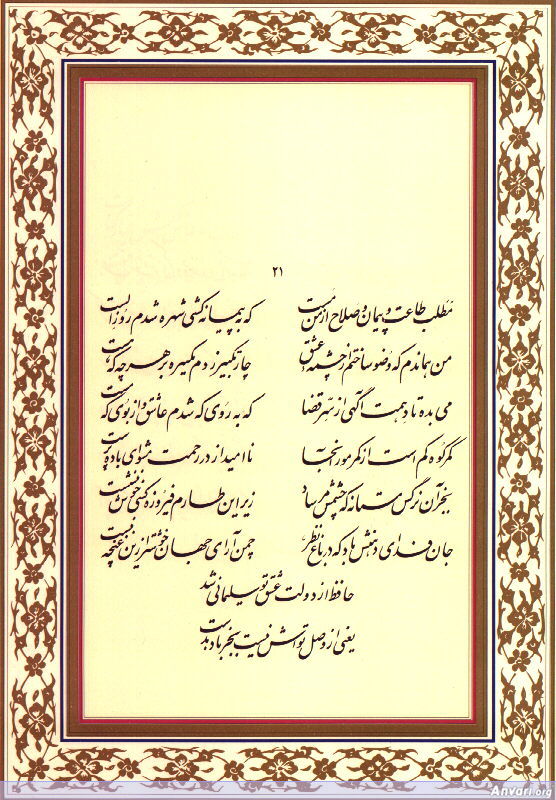 ۲۱
مطلب طاعت و پیمان و صلاح از من مست که به پیمانه کشی شهره شدم روز الست
من هماندم که وضو ساختم از چشمه عشق چار تکبیر زدم یکسره بر هر چه که هست
می بده تا دهمت آگهی از سر قضا که به روی که شدم عاشق و از بوی که مست
کمر کوه کم است از کمر مور اینجا ناامید از در رحمت مشو ای باده پرست
بجز آن نرگس مستانه که چشمش مرساد زیر این طارم فیروزه کسی خوش ننشست
جان فدای دهنش باد که در باغ نظر چمن آرای جهان خوشتر ازین غنچه نبست
حافظ از دولت عشق تو سلیمانی شد
یعنی از وصل تواش نیست بجز باد بدست
Anvari.org